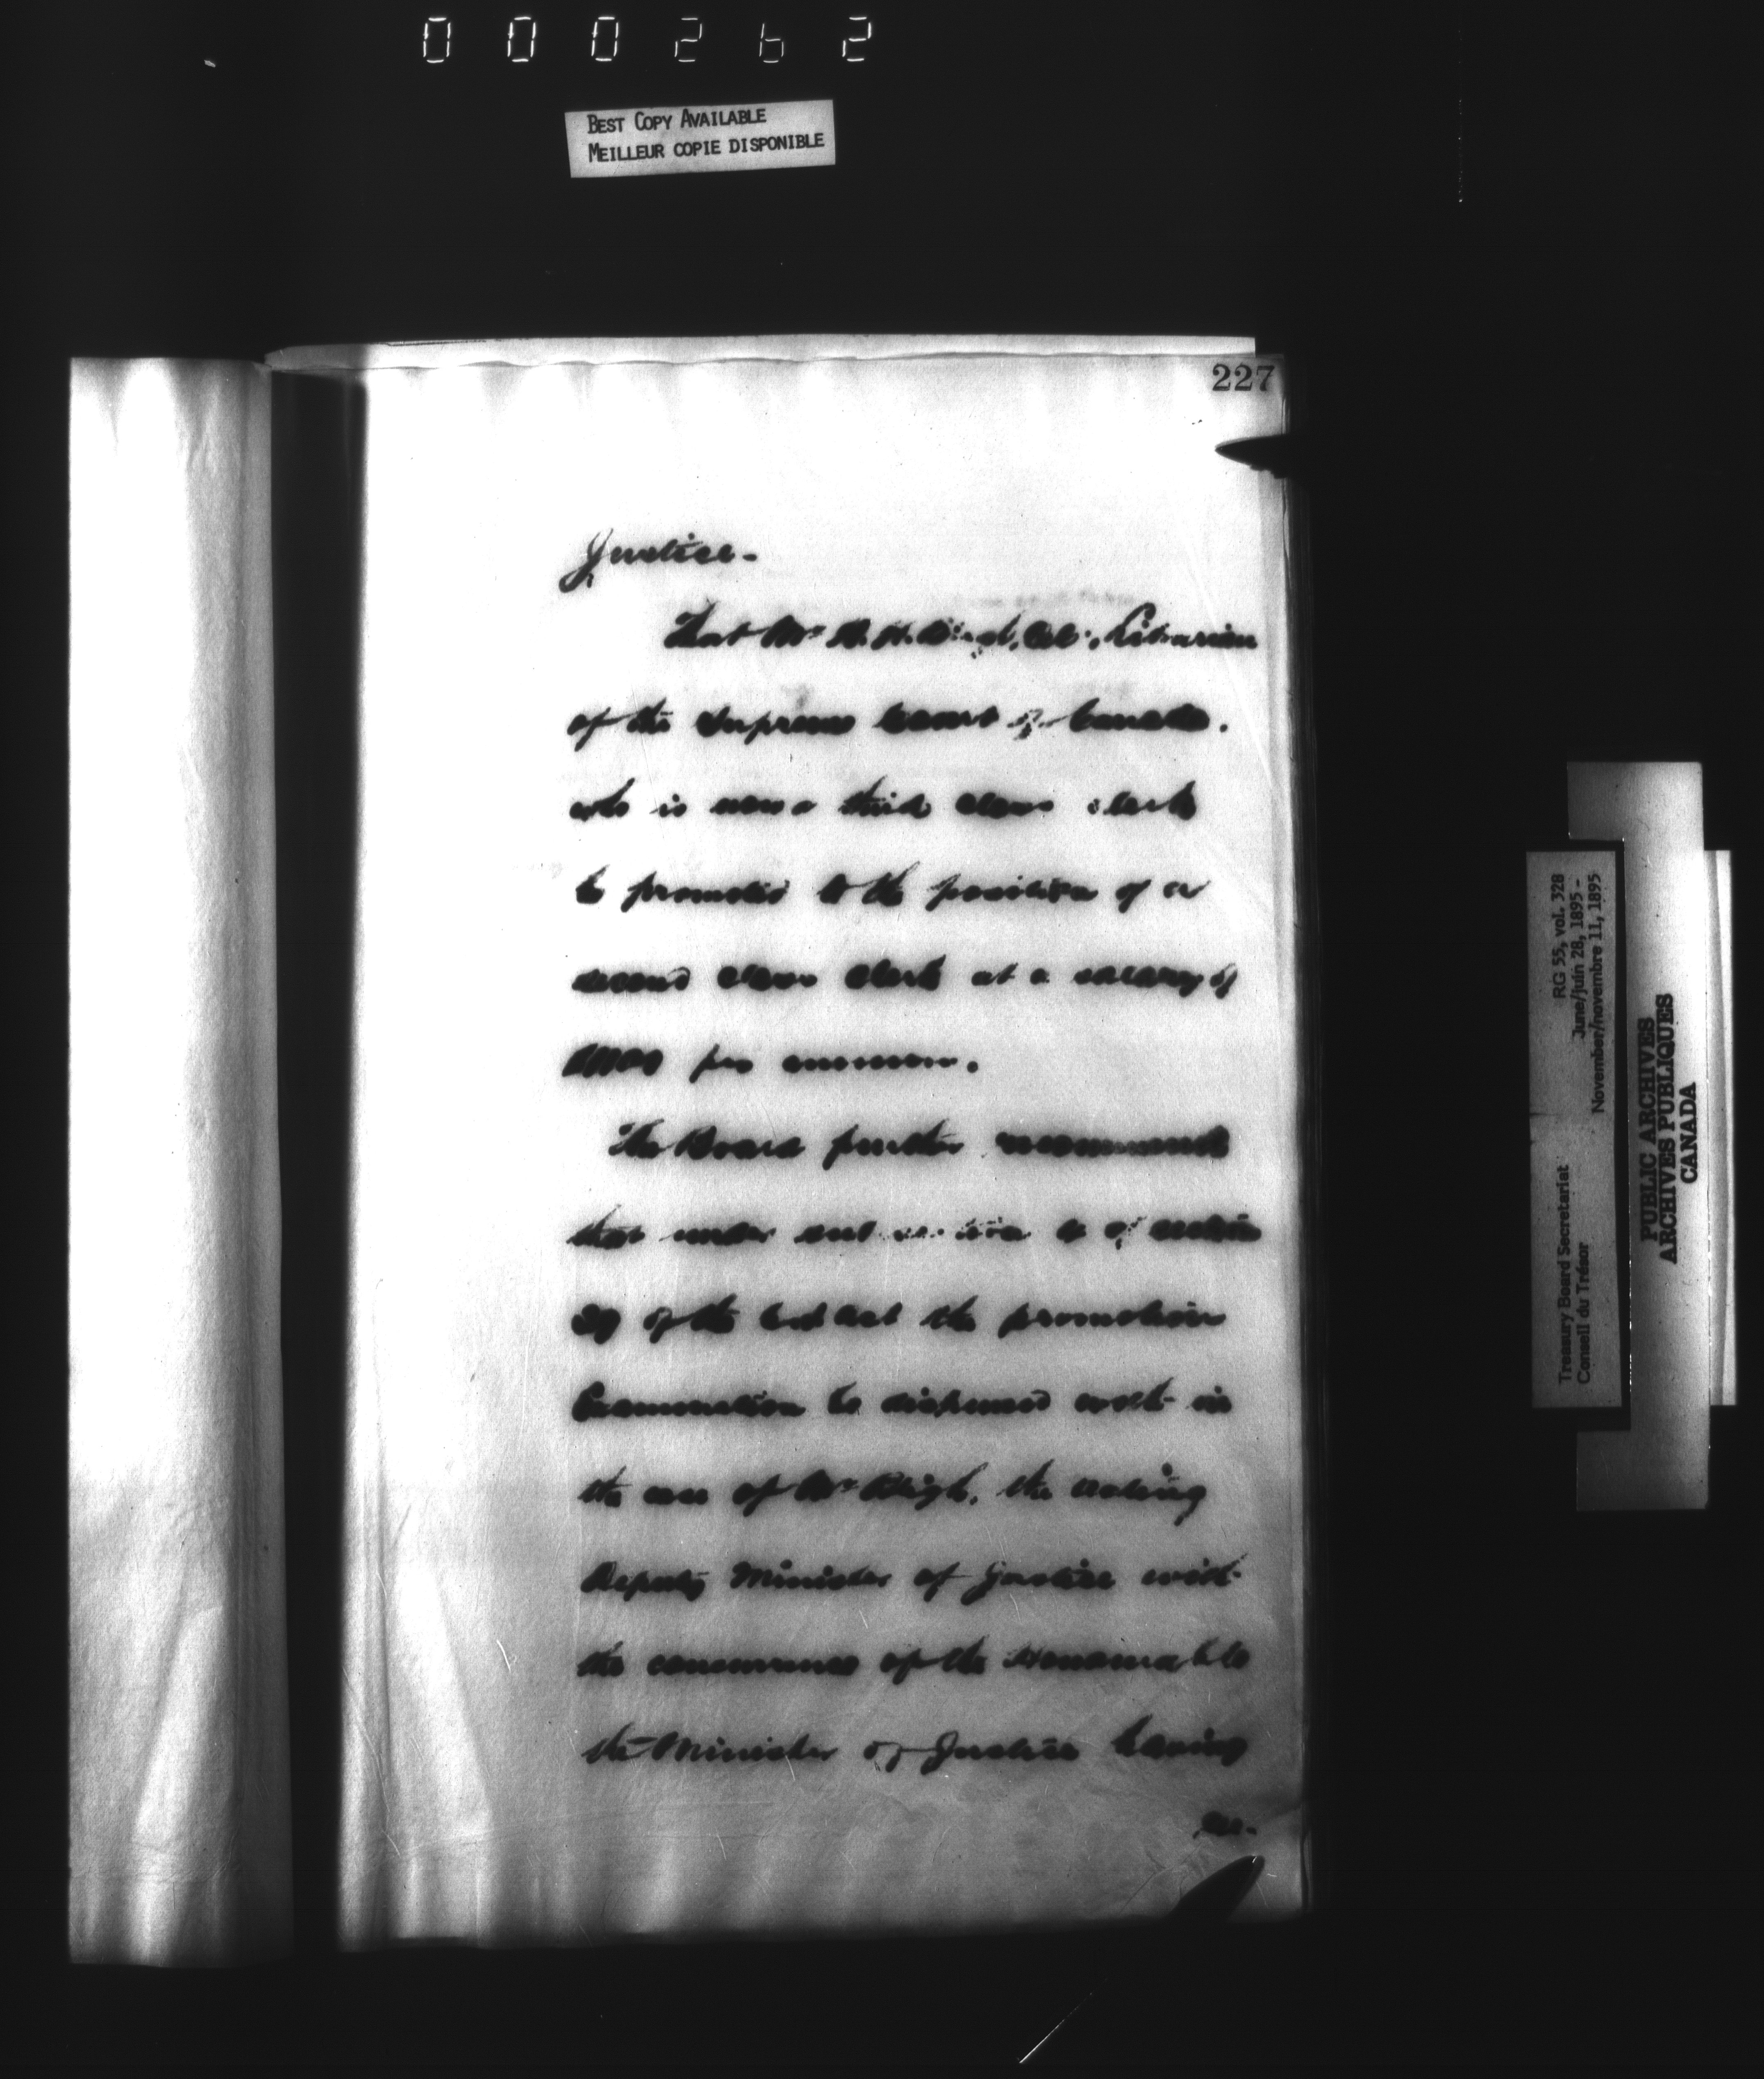 000262
BEST COPY AVAILABLE
MEILLEUR COPIE DISPONIBLE
227
Justice-
That Mr H. H. Librarian
of the Supreme Court of Canada.
who is now a third class clerk
be promoted to the position of a
second class clerk at a salary of
per annum.
The Board further recommend
that under of section
of the the promotion
Examination be dispensed with in
the case of Mr Bligh, the acting
Deputy Minister of Justice with
the concurrence of the Honourable
the Minister of Justice having
Treasury Board Secretariat RG 55, vol. 328
Conseil du Trésor June/juin 28, 1895 -
November/novembre 11, 1895
PUBLIC ARCHIVES
ARCHIVES PUBLIQUES
CANADA